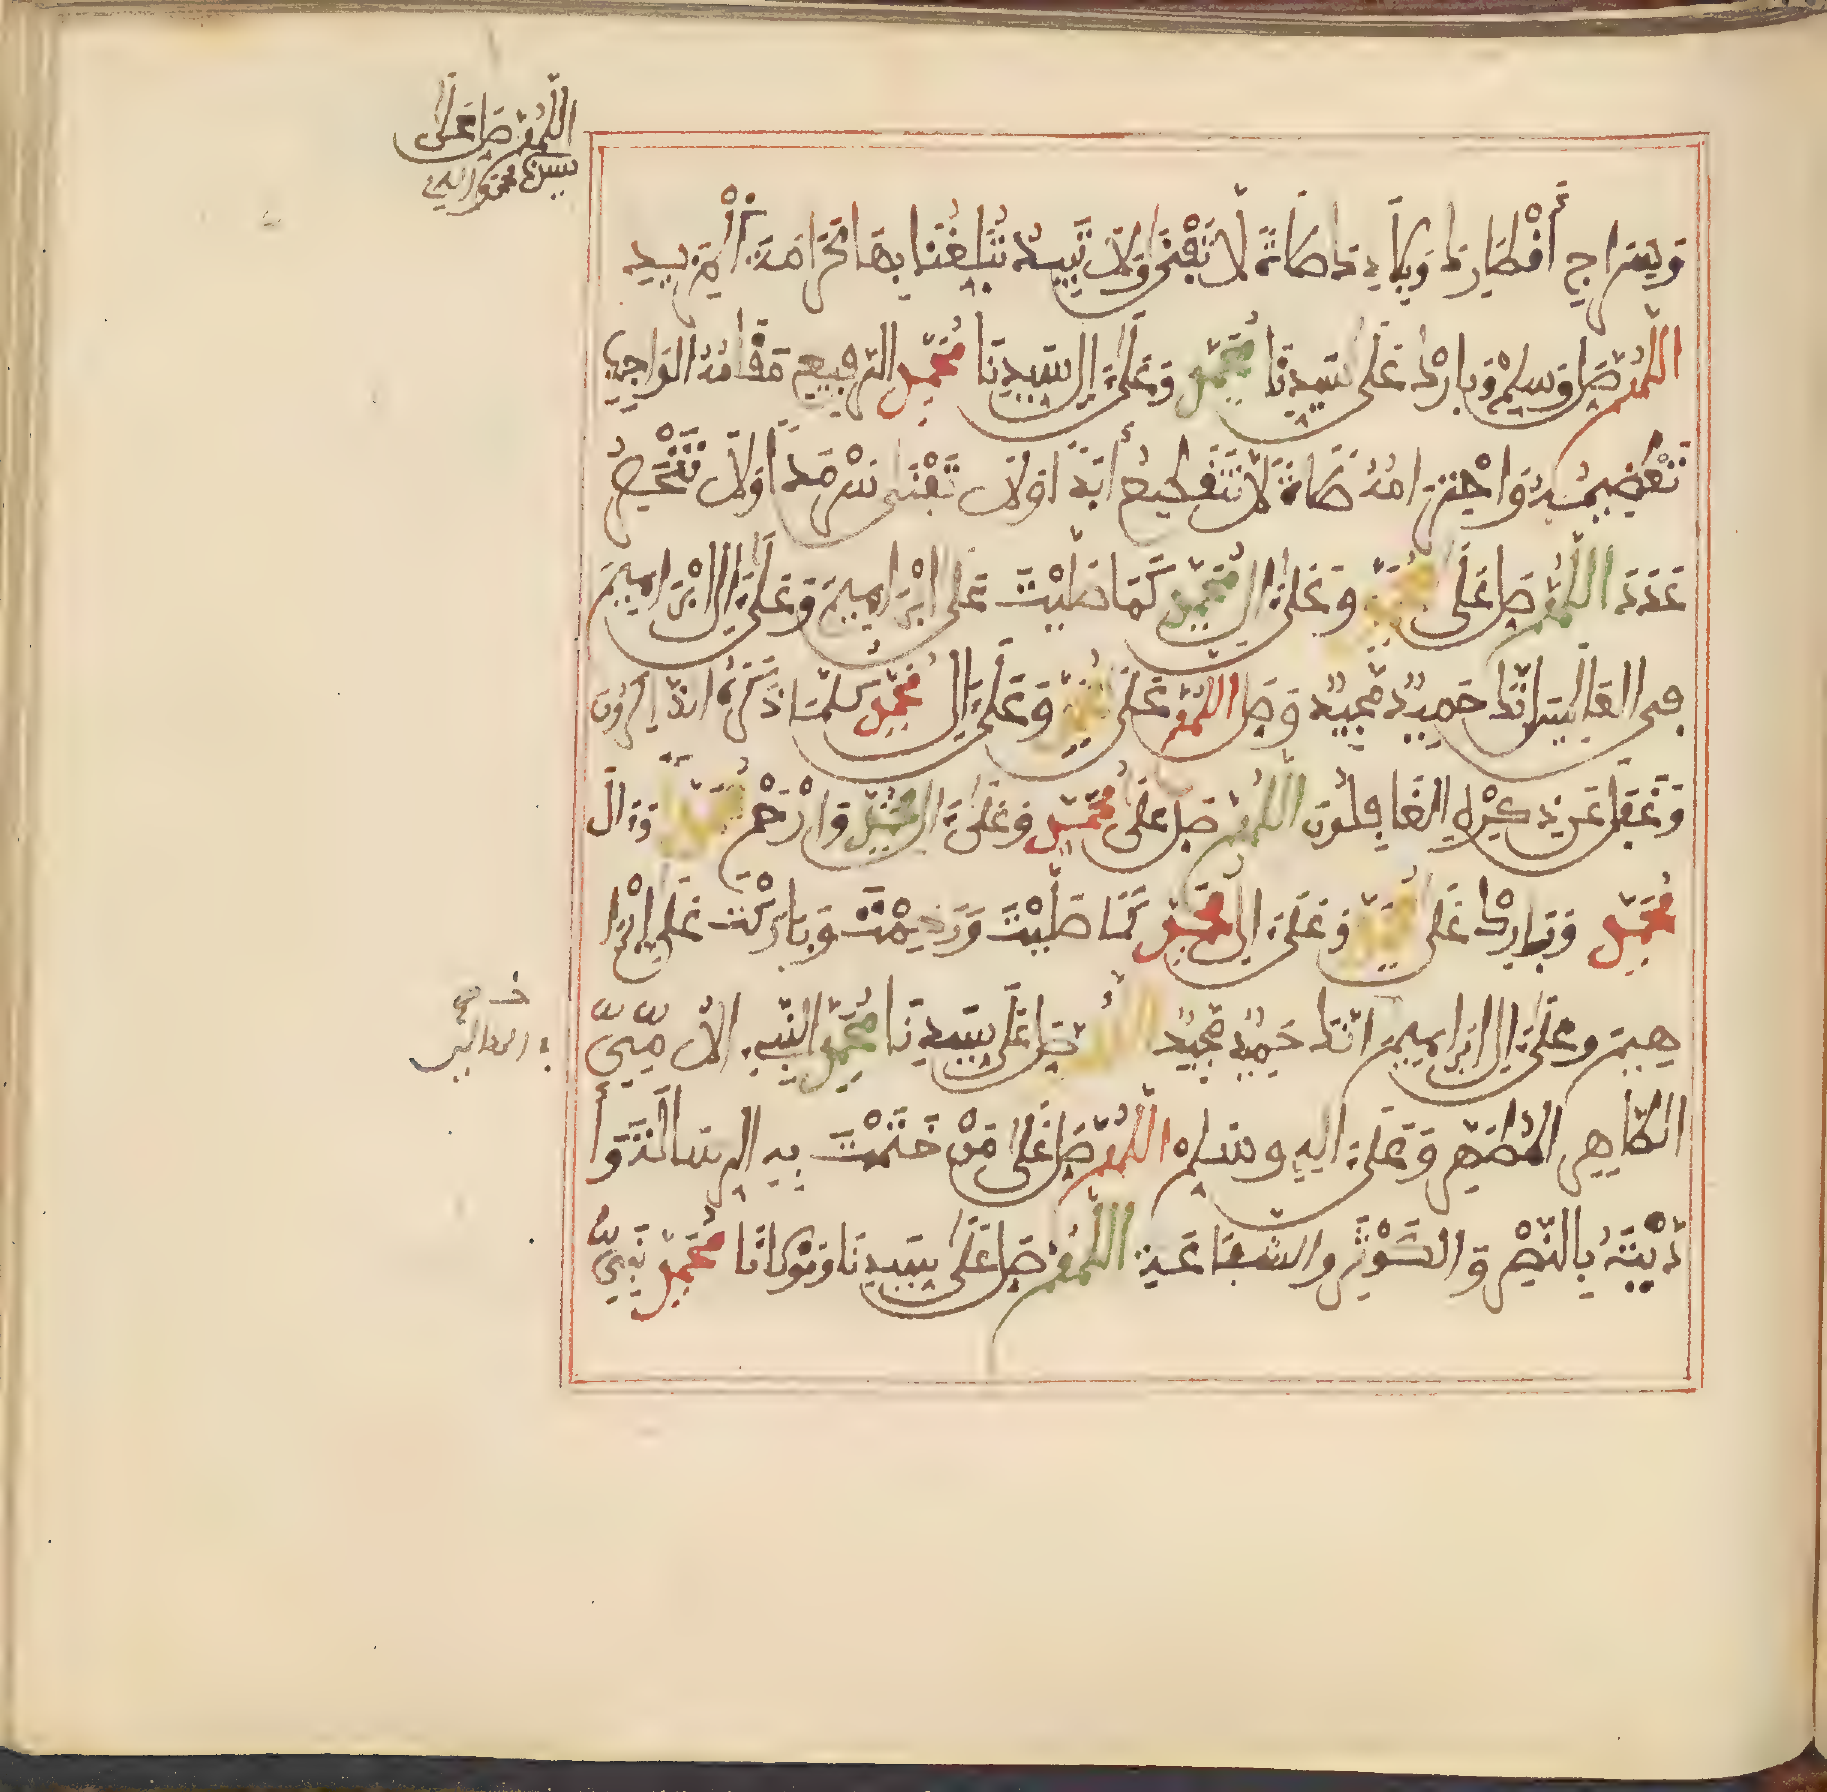 اللهم صل على
سيدنا محمد
وسراج أقطارك وبلادك صلاة لا تفنى ولا تبيد تبلغنا بها كرامة المزيد
اللهم صل وسلم وبارك على سيدنا محمد وعلى ال سيدنا محمد الرفيع مقامه الواجب
تعظيمه واحترامه صلاة لا تنقطع أبدا ولا تفنى سرمدا ولا تنحصر
عددا اللهم صل على محمد وعلى ال محمد كما صليت على ابراهيم وعلى ال ابراهيم
في العالمين انك حميد مجيد وصل اللهم على محمد وعلى ال محمد كلما ذكره الذاكرون
وغفل عن ذكره الغافلون اللهم صل على محمد وعلى ال محمد وارحم محمدا وءال
محمد وبارك على محمد وعلى ال محمد كما صليت ورحمت وباركت على ابرا
هيم وعلى ال ابراهيم انك حميد مجيد اللهم صل على سيدنا محمد النبيء الامي
الطاهر المطهر وعلى اله وسلم اللهم صل على من ختمت به الرسالة وأ
يدته بالنصر والكوثر والشفاعة اللهم صل على سيدنا ومولانا محمد نبي